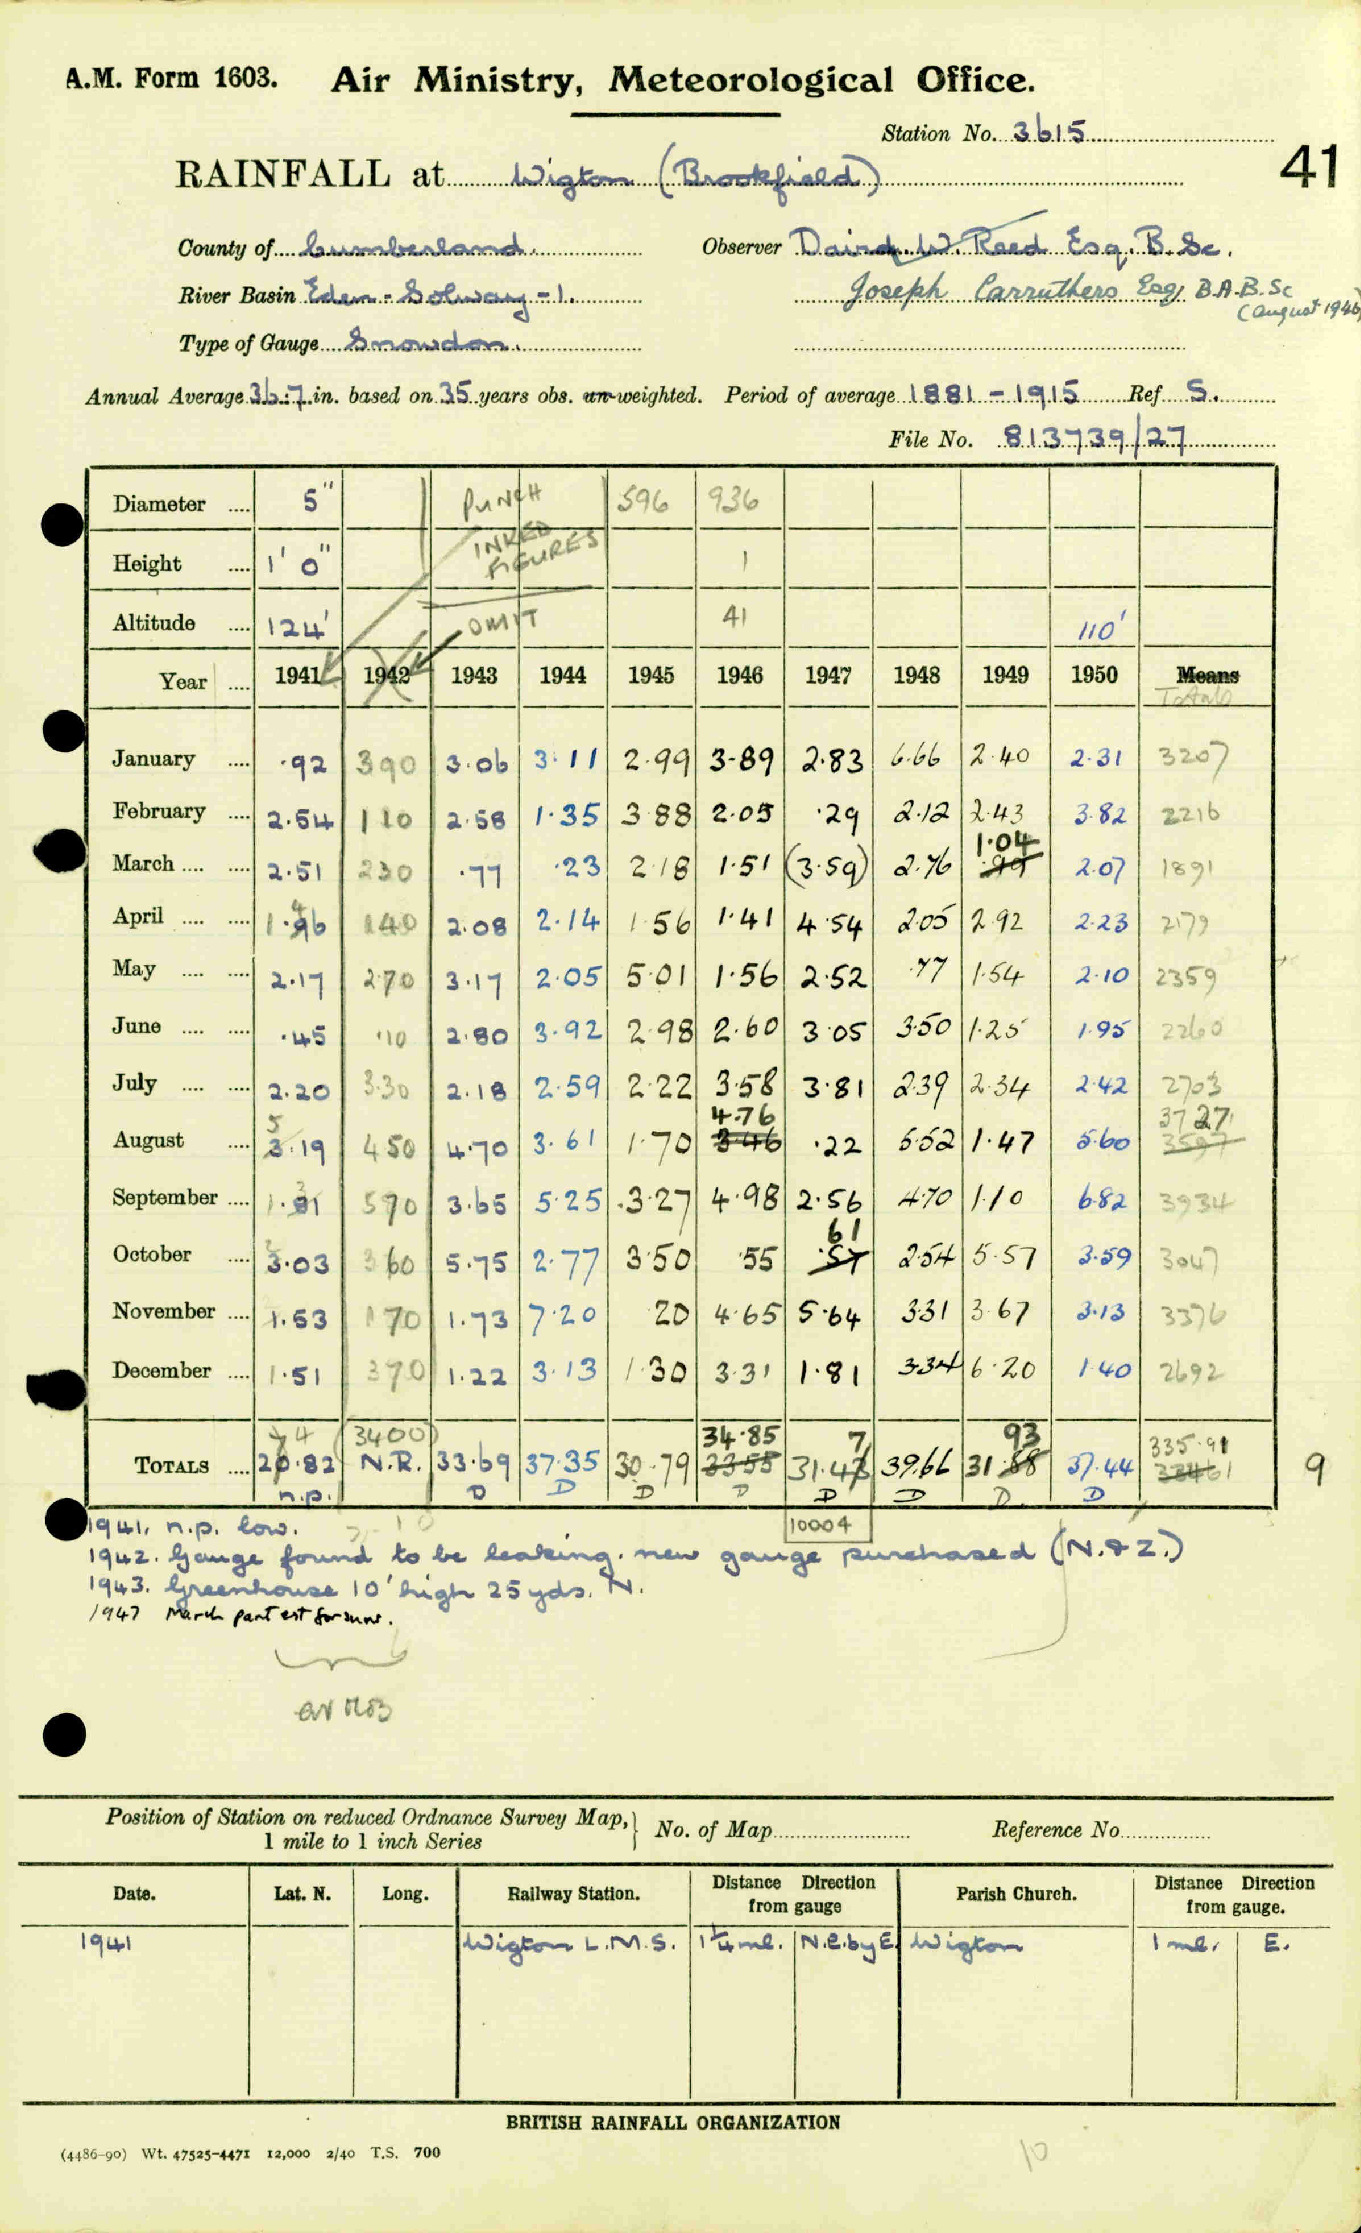 A.M. Form 1603. Air Ministry, Meteorological Office.
Station No. 3615
41
RAINFALL at Wigton (Brookfield)
County of Cumberland. Observer David W. Reed Esq. B.Sc.
River Basin Eden - Solway - 1. Joseph Carruthers Esq B.A. B.Sc
(August 1946)
Type of Gauge Snowdon.
Annual Average 36.7 in. based on 35 years obs. un-weighted. Period of average 1881 - 1915 Ref S.
File No. 813739/27
Diameter .... 5" PUNCH 596 936
INKED
FIGURES
Height .... 1' 0" 1
Altitude .... 124' OMIT 41 110'
Year .... 1941 1942 1943 1944 1945 1946 1947 1948 1949 1950 Means
Totals
January .... .92 390 3.06 3.11 2.99 3.89 2.83 6.66 2.40 2.31 3207
February .... 2.54 110 2.58 1.35 3.88 2.05 .29 2.12 2.43 3.82 2216
1.04
March .... .... 2.51 230 .77 .23 2.18 1.51 (3.59) 2.76 .99 2.07 1891
4
April .... .... 1.96 140 2.08 2.14 1.56 1.41 4.54 2.05 2.92 2.23 2179
May .... .... 2.17 270 3.17 2.05 5.01 1.56 2.52 .77 1.54 2.10 2359
June .... .... .45 .10 2.80 3.92 2.98 2.60 3.05 3.50 1.25 1.95 2260
July .... .... 2.20 3.30 2.18 2.59 2.22 3.58 3.81 2.39 2.34 2.42 2703
5 4.76 3727
August .... 3.19 450 4.70 3.61 1.70 3.46 .22 5.52 1.47 5.60 3597
3
September .... 1.81 570 3.65 5.25 .3.27 4.98 2.56 4.70 1.10 6.82 3934
2 61
October .... 3.03 360 5.75 2.77 3.50 .55 .57 2.54 5.57 3.59 3047
November .... 1.53 170 1.73 7.20 20 4.65 5.64 3.31 3.67 3.13 3376
December .... 1.51 370 1.22 3.13 1.30 3.31 1.81 3.34 6.20 1.40 2692
4 (3400) 34.85 7 93 335.91
TOTALS .... N.R. 33.69 37.35 30.79 33.55 31.43 39.66 31.88 37.44 33461 9
n.p. D D D D D D D D
10004
1941. n.p. low.
1942. Gauge found to be leaking. new gauge purchased (N. & Z.)
1943. Greenhouse 10' high 25 yds. N.
1947 March part est for snow.
Position of Station on reduced Ordnance Survey Map, No. of Map Reference No.
1 mile to 1 inch Series
Date. Lat. N. Long. Railway Station. Distance from gauge Direction Parish Church. Distance from gauge. Direction
1941 Wigton L.M.S. 1¼ ml. N.E. by E. Wigton 1 ml. E.
BRITISH RAINFALL ORGANIZATION
(4486-90) Wt. 47525-4471 12,000 2/40 T.S. 700
10